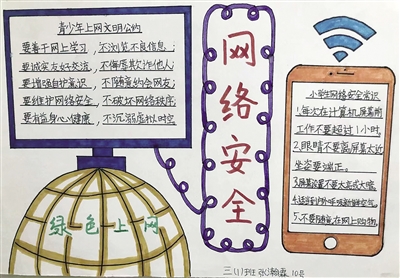 青少年上网文明公约
要善于网上学习，不浏览不良信息；
要诚实友好交流，不侮辱欺诈他人；
要增强自护意识，不随意约会网友；
要维护网络安全，不破坏网络秩序；
要有益身心健康，不沉溺虚拟时空
绿色上网
网络安全
小学生网络安全常识
1.每次在计算机屏幕前
工作不要超过1小时
2.眼睛不要离屏幕太近
坐姿要端正。
3.屏幕设置不要太亮或太暗
4.适到户外呼吸新鲜空气。
5.不要随意在网上购物
三(1)班 张 10号